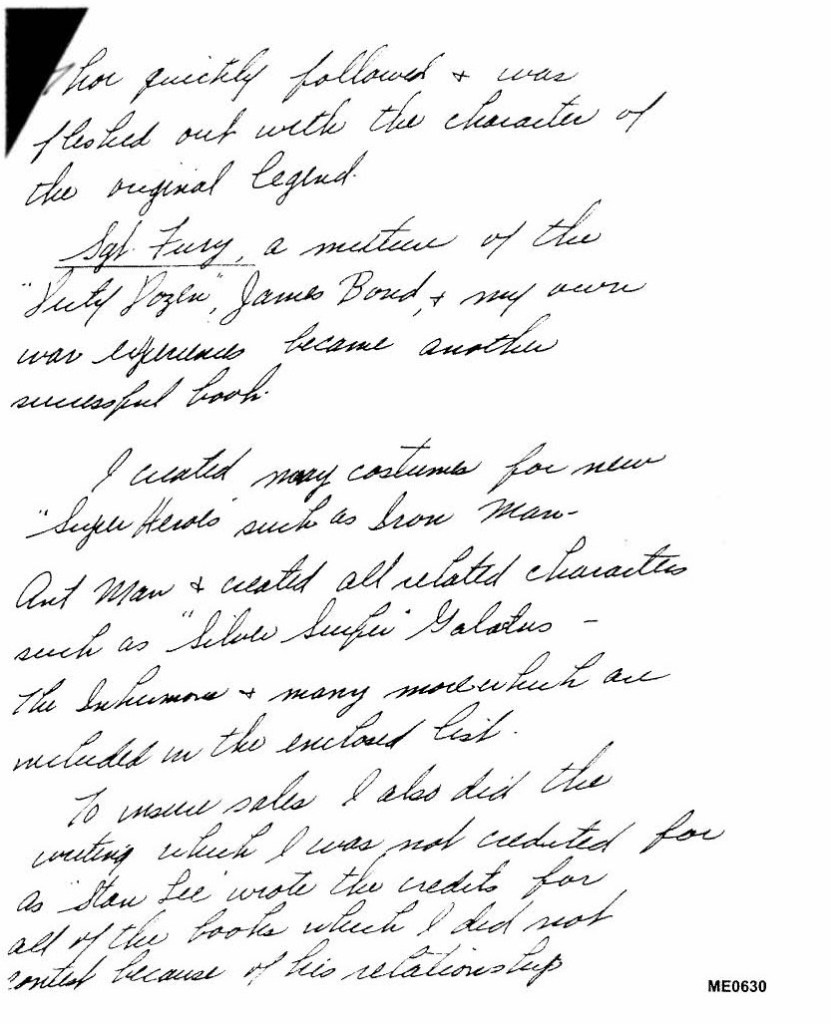 Thor quickly followed + was
fleshed out with the character of
the original legend.
Sgt. Fury, a mixture of the
"Dirty Dozen", James Bond, + my own
war experiences became another
successful book.
I created many costumes for new
"Super Heroes" such as Iron Man-
Ant Man + created all related characters
such as "Silver Surfer" Galatus -
The Inhumans + many more which are
included in the enclosed list.
To insure sales I also did the
writing which I was not credited for
as "Stan Lee" wrote the credits for
all of the books which I did not
contest because of his relationship
ME0630